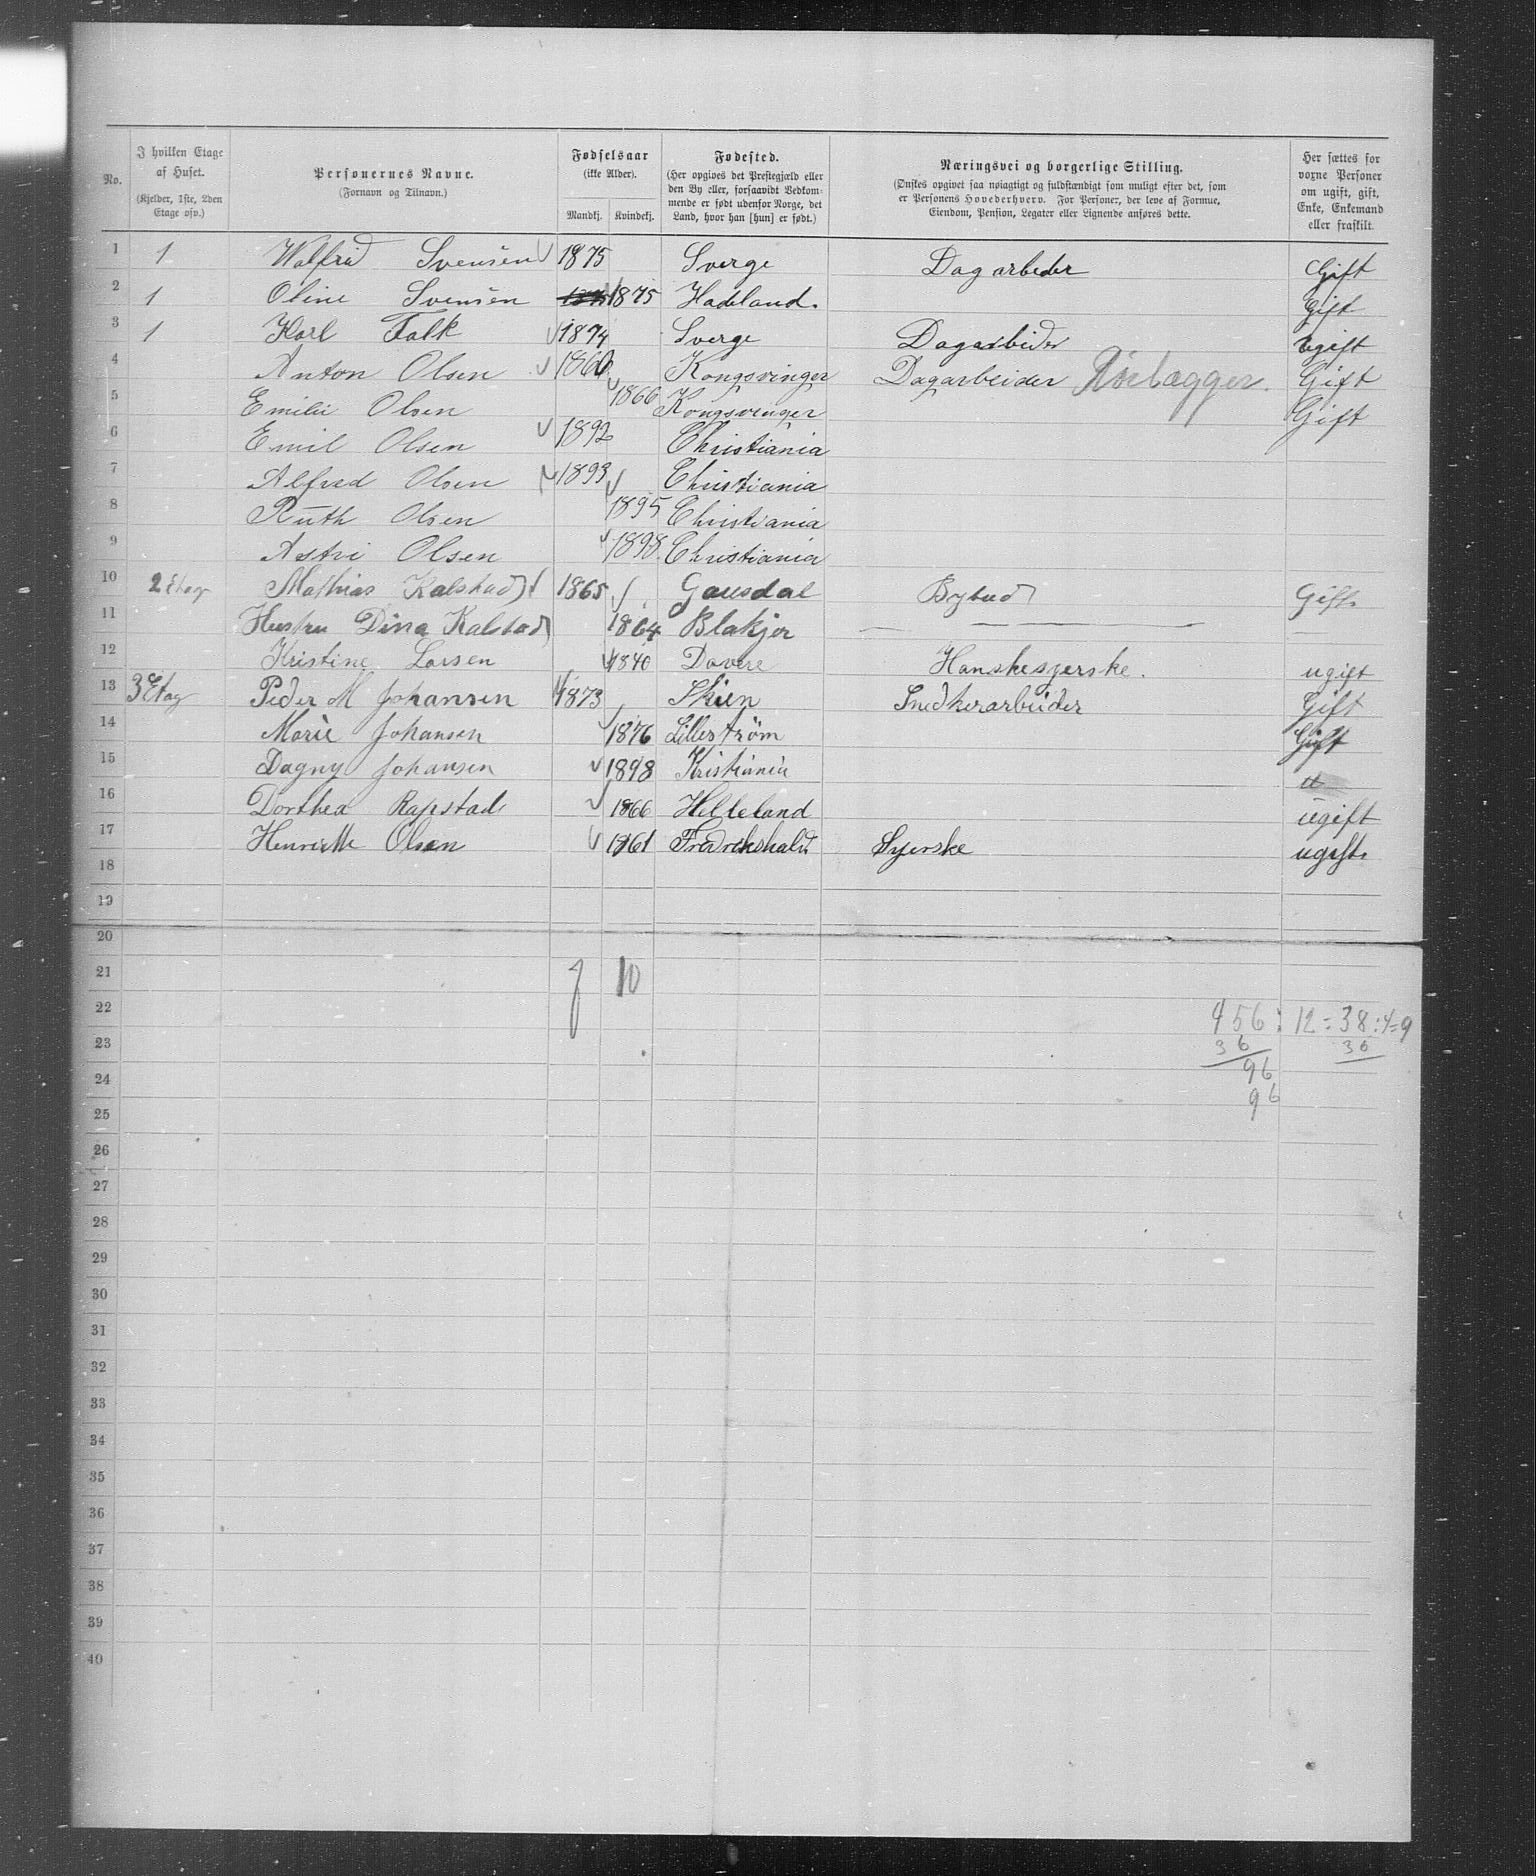 No.
I hvilken Etage af Huset.
(Kjelder, 1ste, 2den Etage osv.)
Personernes Navne.
(Fornavn og Tilnavn.)
Fødselsaar
(ikke Alder).
Mandkj. Kvindekj.
Fødested.
(Her opgives det Prestegjæld eller den By eller, forsaavidt Vedkommende er født udenfor Norge, det Land, hvor han [hun] er født.)
Næringsvei og borgerlige Stilling.
(Ønskes opgivet saa nøiagtigt og fuldstændigt som muligt efter det, som er Personens Hovederhverv. For Personer, der leve af Formue, Eiendom, Pension, Legater eller Lignende anføres dette.
Her sættes for voxne Personer om ugift, gift, Enke, Enkemand eller fraskilt.
1 1 Walfrid Svensen 1875 Sverge Dagarbeder Gift
2 1 Oline Svensen 1875 Hadeland. Gift
3 1 Karl Falk 1874 Sverge Dagarbeider ugift
4 Anton Olsen 1866 Kongsvinger Dagarbeider Rørlægger. Gift
5 Emilie Olsen 1866 Kongsvinger Gift
6 Emil Olsen 1892 Christiania
7 Alfred Olsen 1893 Christiania
8 Ruth Olsen 1895 Christiania
9 Astri Olsen 1898 Christiania
10 2 Etage Mathias Kalstad 1865 Gausdal Bybud Gift
11 Hustru Dina Kalstad 1864 Blakjer
12 Kristine Larsen 1840 Dovre Hanskesyerske. ugift
13 3 Etag Peder M Johansen 1873 Skien Snedkerarbeider Gift
14 Marie Johansen 1876 Lillestrøm Gift
15 Dagny Johansen 1898 Kristiania u
16 Dorthea Rapstad 1866 Helleland ugift
17 Henriette Olsen 1861 Fredrikshald Syerske ugift
18
19
20
21 7 10
22 456 : 12 = 38 : 4 = 9
23 36 36
24 96
25 96
26
27
28
29
30
31
32
33
34
35
36
37
38
39
40